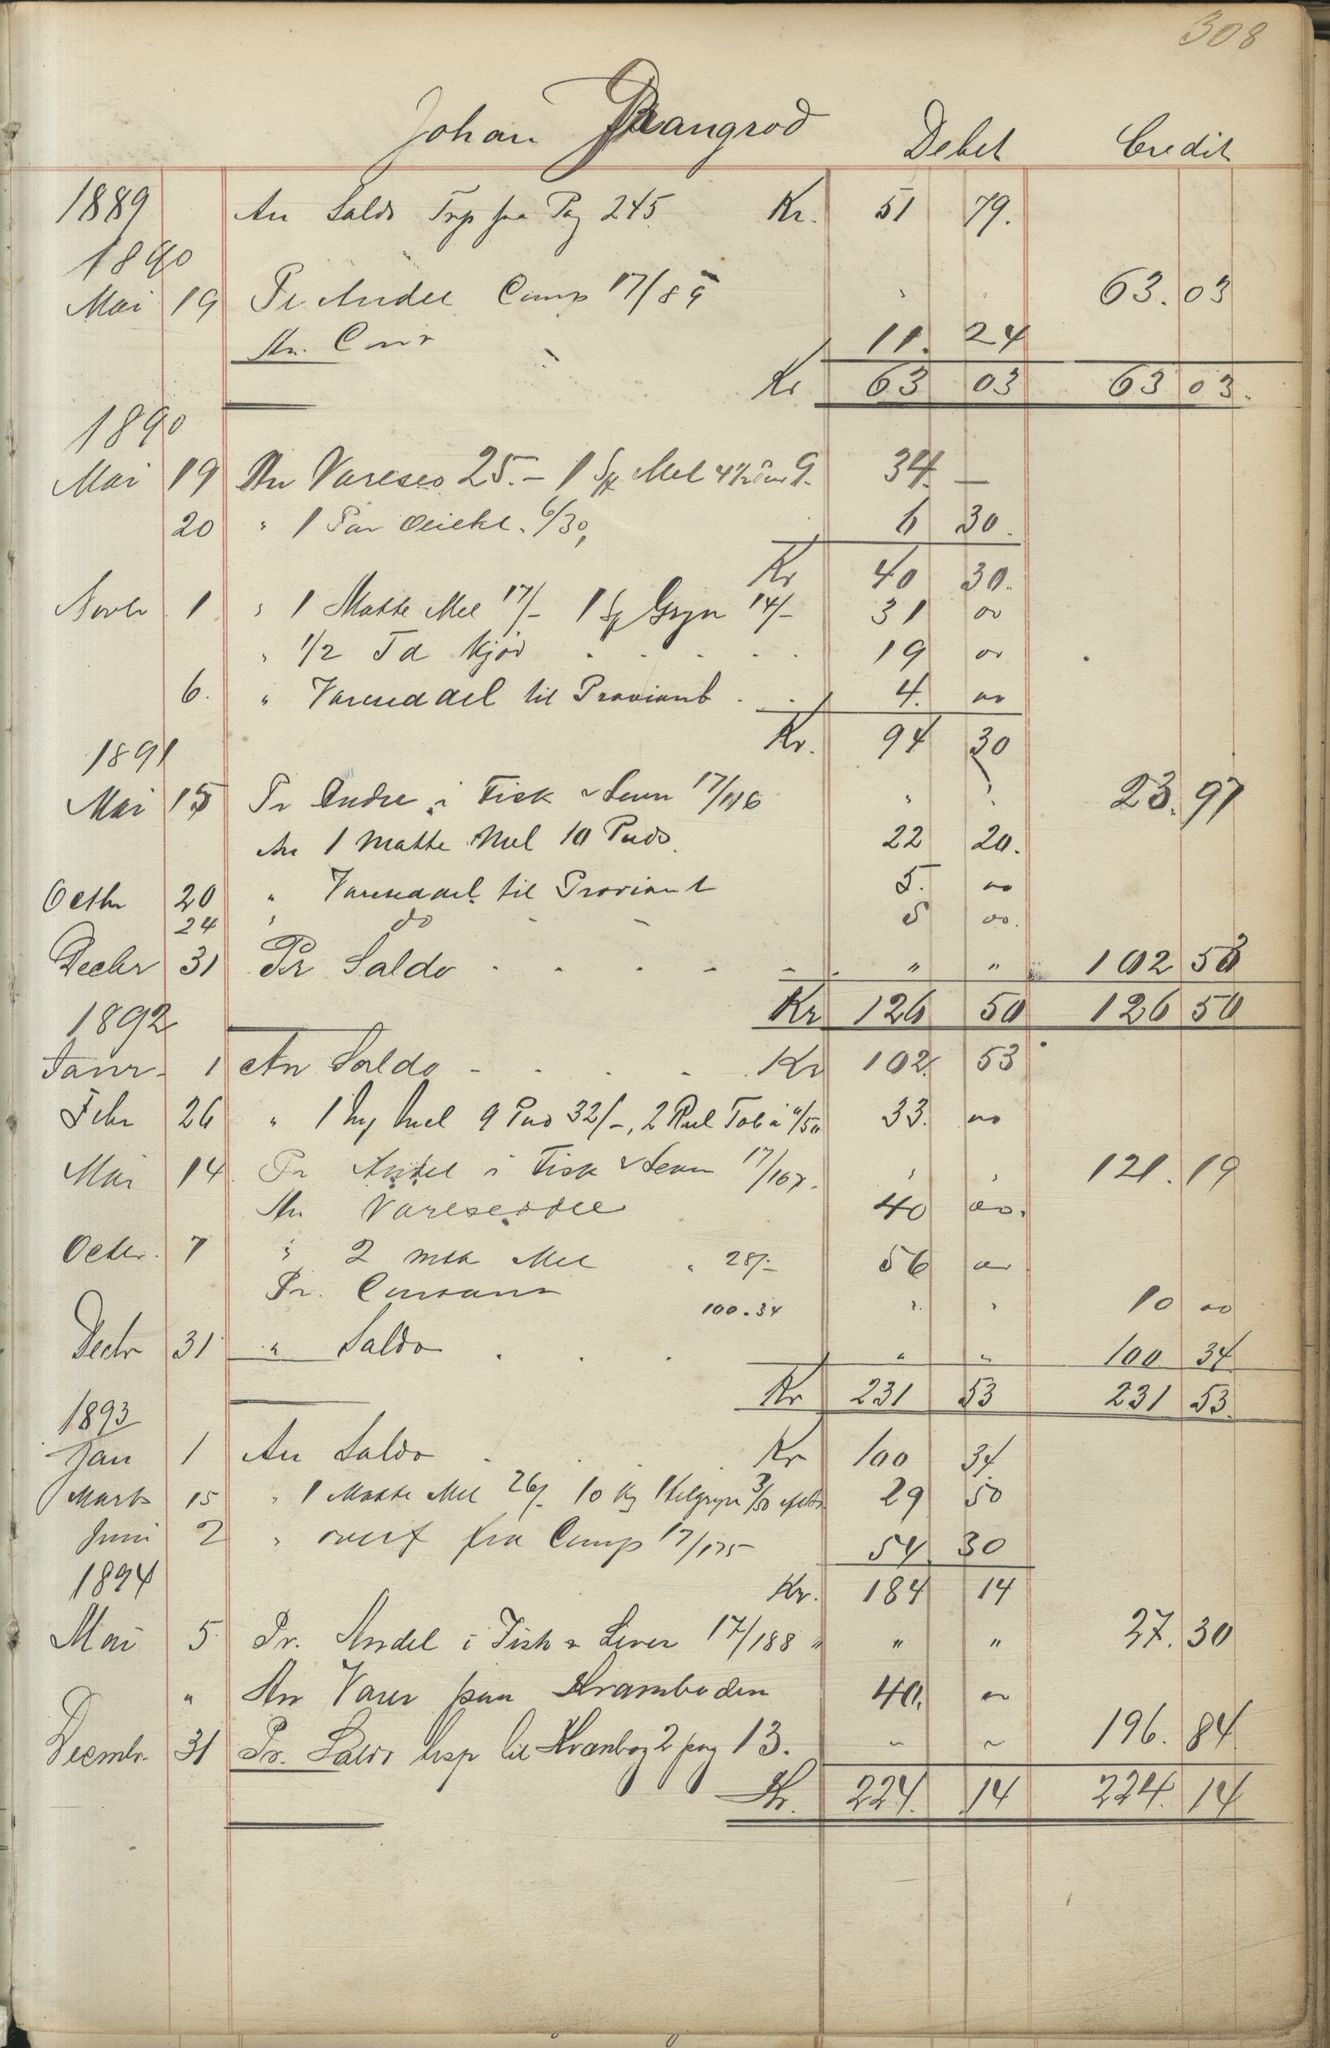 308
Johan Brangrod Debet Credit
1889 An Saldo Trp fra Pag 245. Kr. 51 79.
1890
Mai 19 Pr Andel Comp 17/89 " " 63. 03
An. Cont 11. 24
Kr 63 03 63 03.
1890
Mai 19 An Varesed 25.- 1 Sk Mel 9. 34. —
20 " 1 Par 6/30, 6 30.
Kr 40 30.
Novbr 1 " 1 Matte Mel 17/- 1 Sk Gryn 14/- 31 oo
" 1/2 Td Kjød . . . . . 19 oo
6. " Vareseddel til Proviant . . 4. oo
Kr. 94 30
1891
Mai 15 Pr Andel i Fisk & Lever 17/116 " " 23. 97
An 1 Matte Mel 10 Puds. 22 20.
Octbr 20 " Vareseddel til Proviant 5. oo
24 " do - - 5 oo.
Decbr 31 Pr Saldo . . . . . . " " 102 53
Kr 126 50 126 50
1892
Janr. 1 An Saldo . . . . Kr 102. 53
Febr 26 " 1 Mel 9 Pud 32/-, 2 Rul Tob a /50 33. oo
Mai 14 Pr Andel i Fisk & Lever 17/167. " " 121. 19
An Vareseddel 40 oo.
Octbr. 7 " 2 mtt Mel " 28/- 56 oo
Pr. Contant 100.34 " " 10 oo
Decbr 31 " Saldo . . . " " 100 34
Kr 231 53 231 53.
1893
Jan 1 An Saldo . . . Kr 100 34
Marts 15 " 1 Matte Mel 26/- 10 Kg Helgryn 3/50 29 50
Juni 2 " overf fra Comp 17/175 54 30
1894 Kr. 184 14
Mai 5. Pr. Andel i Fisk & Lever 17/188 " " " 27. 30
" An Varer paa Kramboden 40. oo
Decembr. 31 Pr. Saldo trsp til Krambog 2 pag 13. " " 196. 84
Kr. 224. 14 224. 14